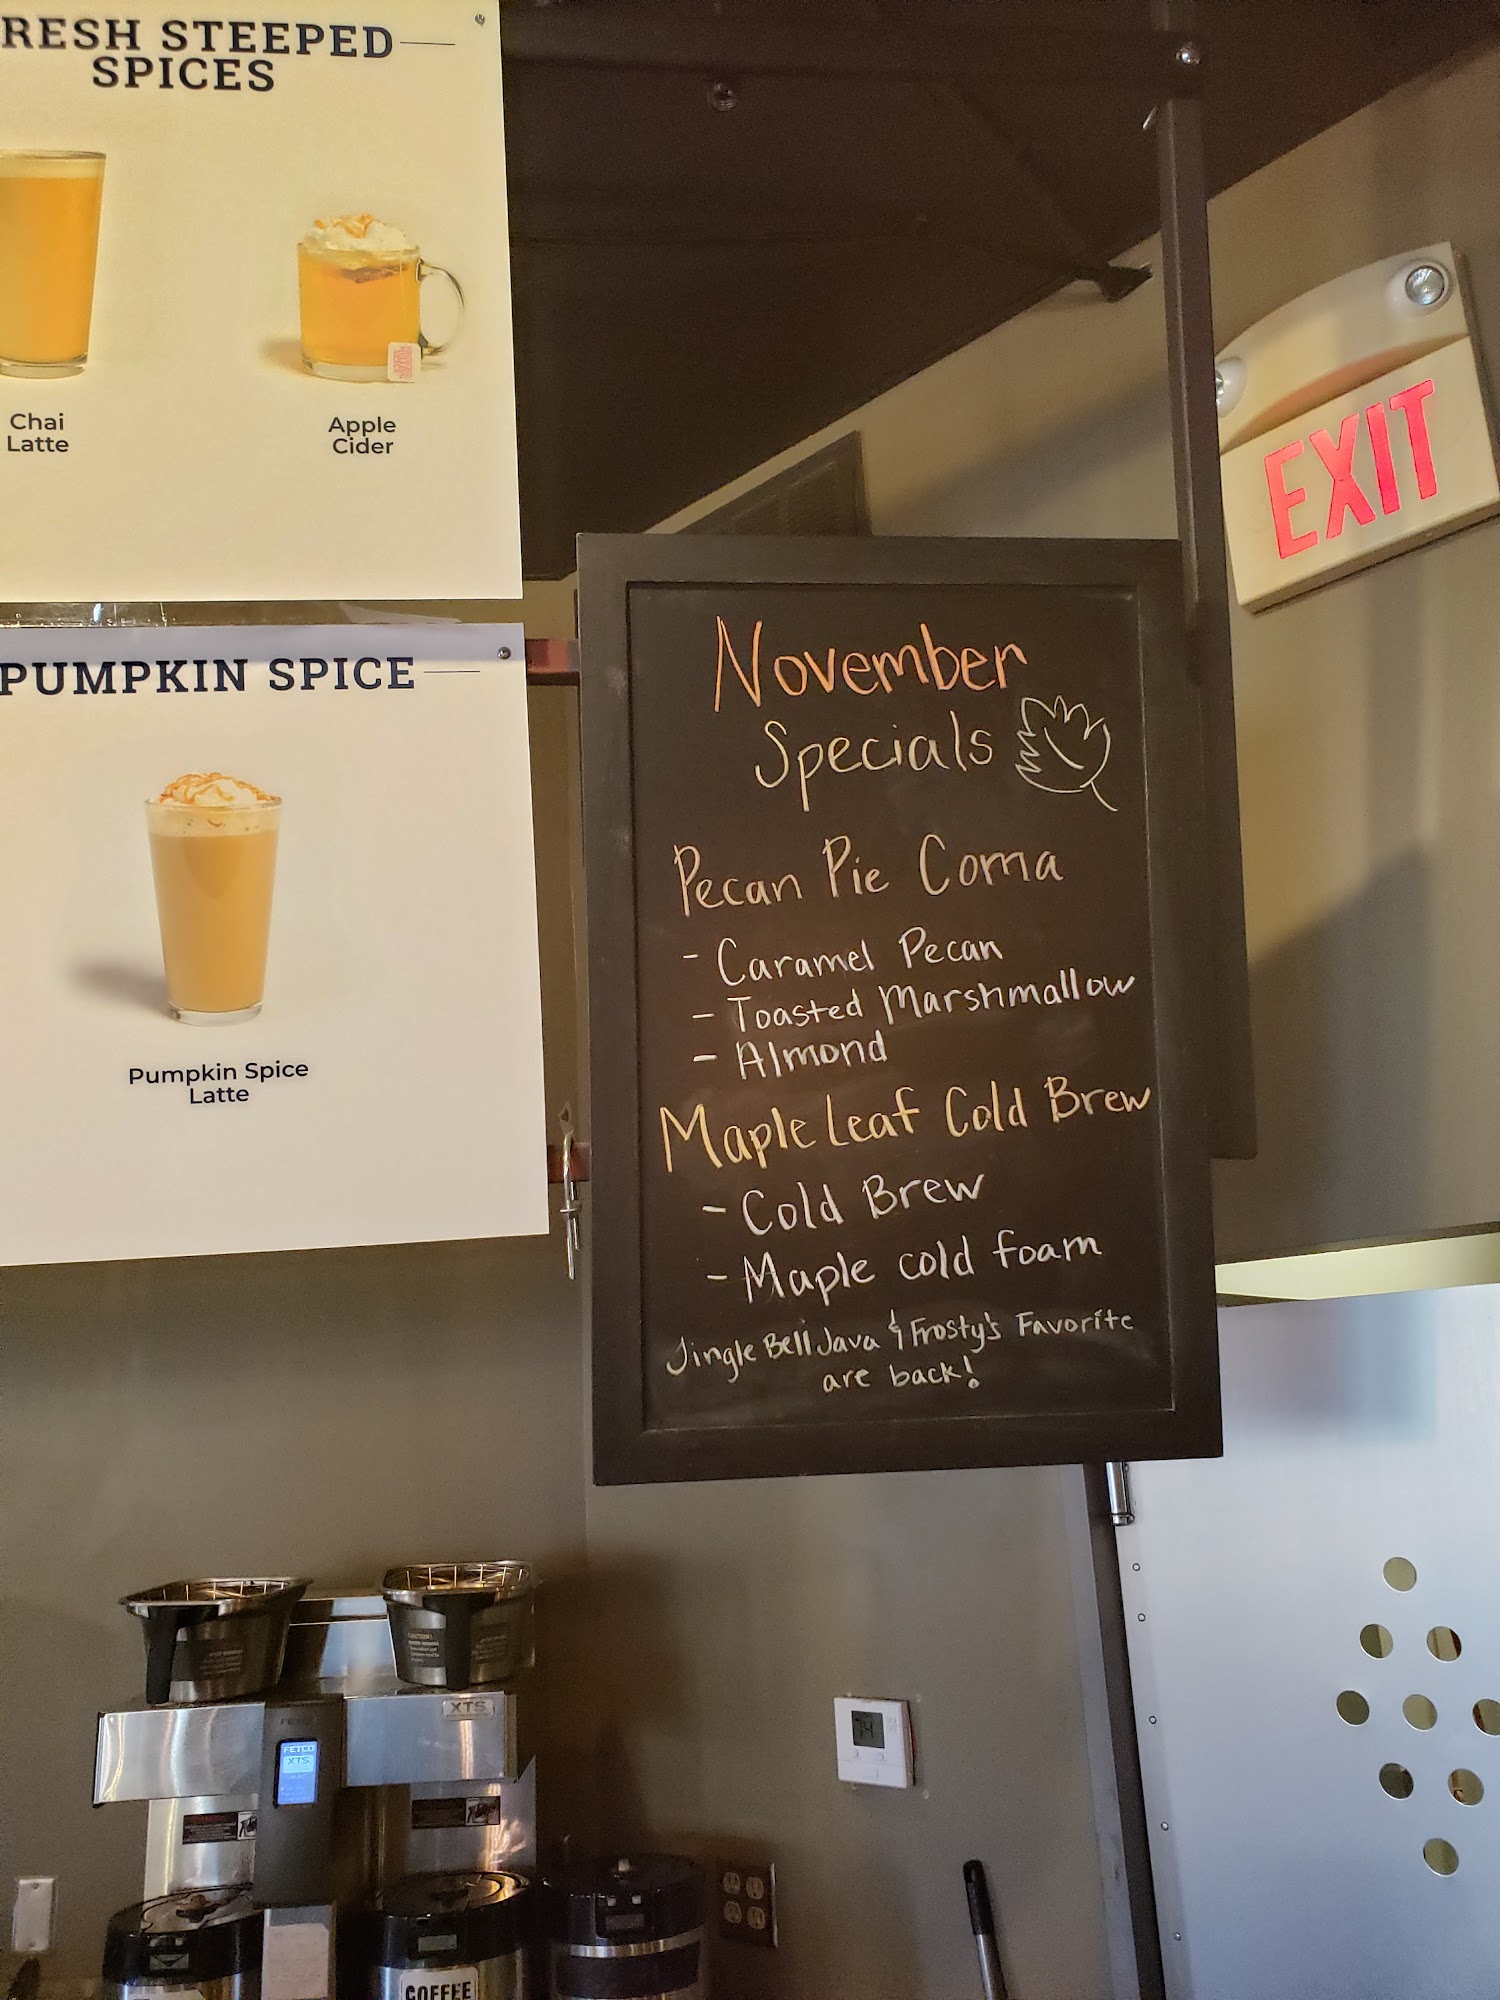 RESH STEEPED
SPICES
Chai
Latte
Apple
Cider
PUMPKIN SPICE
Pumpkin Spice
Latte
EXIT
November
Specials
Pecan Pie Coma
- Caramel Pecan
- Toasted Marshmallow
- Almond
Maple Leaf Cold Brew
- Cold Brew
- Maple cold foam
Jingle Bell Java & Frosty's Favorite
are back!
XTS
FETCO
XTS
74
COFFEE